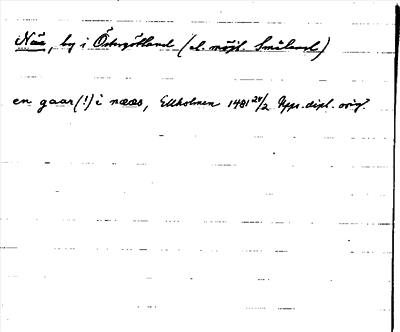 Näs, by i Östergötland (el. möjl. Småland)
en gaar (!) i næss, Ekholmen 1481 24/2 Upps. dipl. orig.